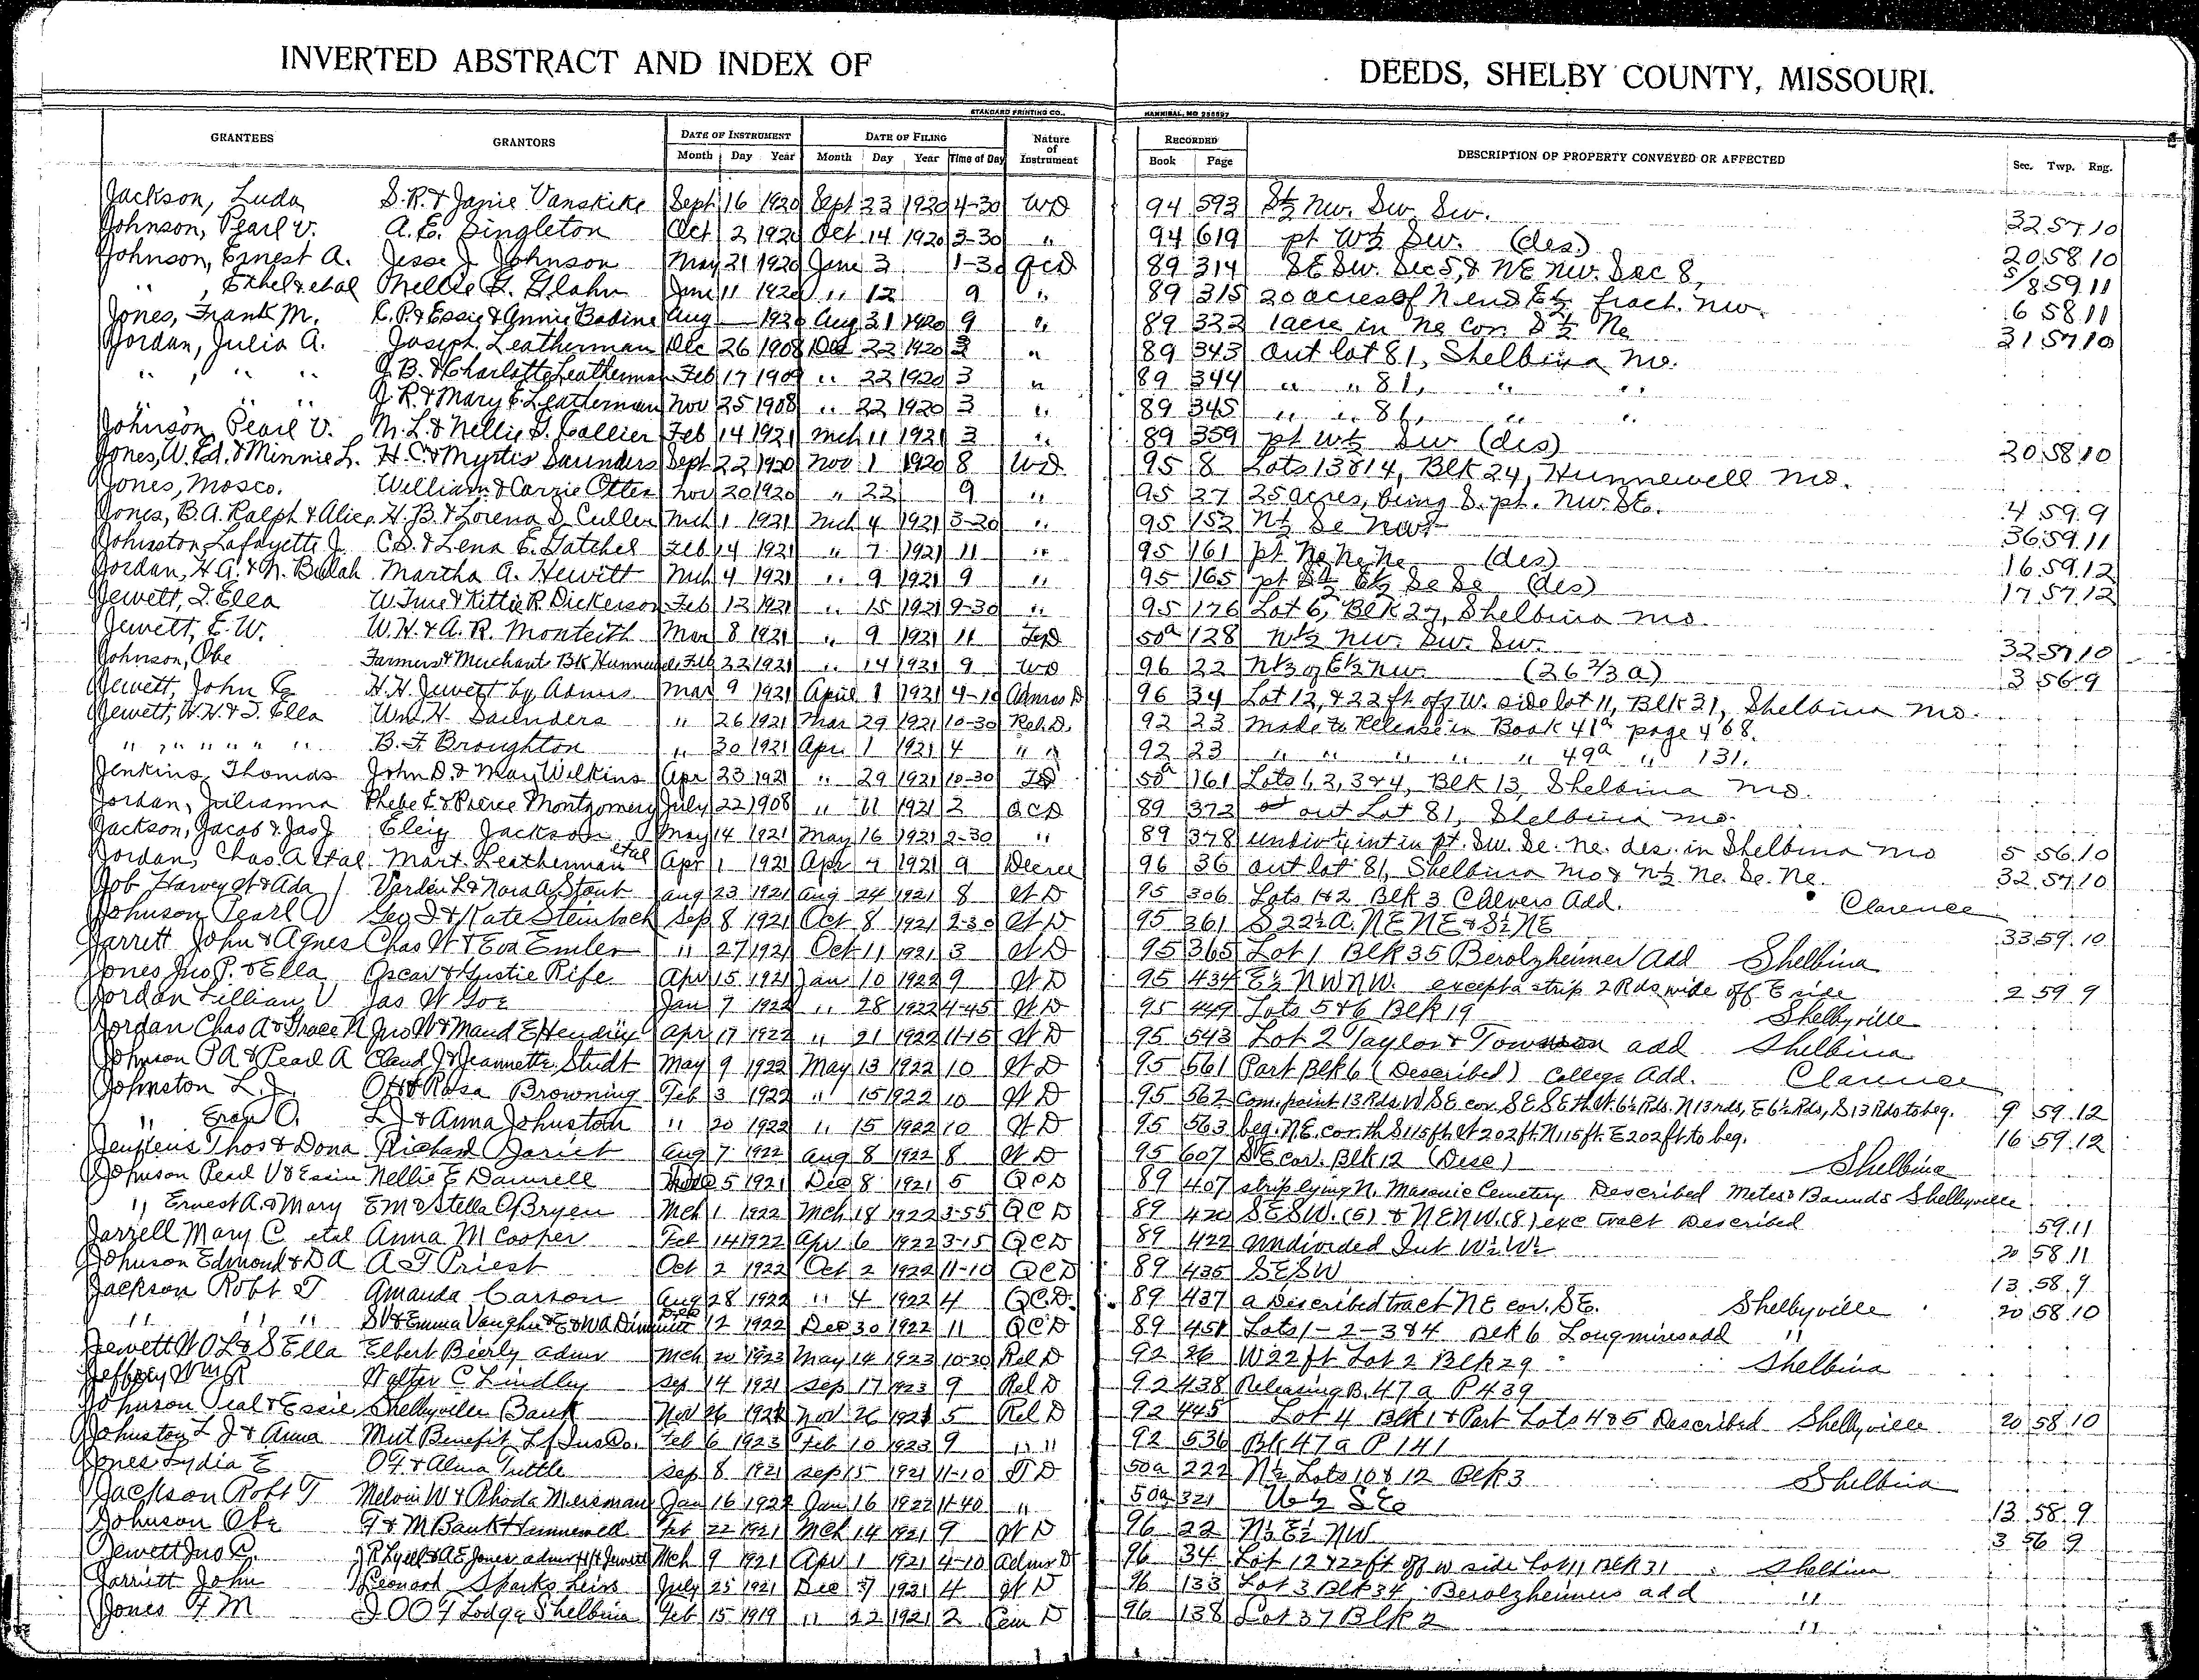 INVERTED ABSTRACT AND INDEX OF DEEDS, SHELBY COUNTY, MISSOURI.
STANDARD PRINTING CO., HANNIBAL, MO
GRANTEES GRANTORS DATE OF INSTRUMENT DATE OF FILING Nature of Instrument RECORDED DESCRIPTION OF PROPERTY CONVEYED OR AFFECTED Sec. Twp. Rng.
Month Day Year Month Day Year Time of Day Book Page
Jackson, Luda S.R. & Janie Vanskike Sept 16 1920 Sept 23 1920 4-30 WD 94 593 S½ NW. SW. SW. 32 57 10
Johnson, Pearl V. A. E. Singleton Oct 2 1920 Oct 14 1920 3-30 " 94 619 pt W½ SW. (des) 20 58 10
Johnson, Ernest A. Jesse J. Johnson May 21 1920 June 3 1-30 QCD 89 314 SE SW. Sec 5, & NE NW. Sec 8, 5/8 59 11
" , Ethel & etal Nellie F. Glahn June 11 1920 " 12 9 " 89 315 20 acres of N end E½ fract. NW. 6 58 11
Jones, Frank M. C.P. & Essie & Annie Bodine Aug — 1920 Aug 31 1920 9 " 89 322 1 acre in NE Cor S½ NE 31 57 10
Jordan, Julia A. Joseph Leatherman Dec 26 1908 Dec 22 1920 3 " 89 343 Out lot 81, Shelbina Mo.
" " " J.B. & Charlotte Leatherman Feb 17 1909 " 22 1920 3 " 89 344 " " 81, " "
" " " J.R. & Mary E. Leatherman Nov 25 1908 " 22 1920 3 " 89 345 " " 81, " "
Johnson, Pearl V. M. L. & Nellie S. Collier Feb 14 1921 Mch 11 1921 3 " 89 359 pt W½ SW (des) 20 58 10
Jones, W. Ed. & Minnie L. H. C. & Myrtis Saunders Sept 22 1920 Nov 1 1920 8 WD 95 8 Lots 13 & 14, Blk 24, Hunnewell Mo.
Jones, Mosco. William & Carrie Otten Nov 20 1920 " 22 9 " 95 27 25 acres, being S. pt. NW. SE. 4 59 9
Jones, B.A. Ralph & Alice H. B. & Lorena D. Culler Mch 1 1921 Mch 4 1921 3-20 " 95 152 N½ SE NW 36 59 11
Johnston, Lafayette J. C.S. & Lena E. Gatchel Feb 14 1921 " 7 1921 11 " 95 161 pt NE NE NE (des) 16 59 12
Jordan, H.G. & N. Bulah Martha A. Hewitt Mch 4 1921 " 9 1921 9 " 95 165 pt S½ E½ SE SE (des) 17 57 12
Jewett, S. Ella W. June & Kittie R. Dickerson Feb 12 1921 " 15 1921 9-30 " 95 176 Lot 6, Blk 27, Shelbina Mo.
Jewett, E. W. W. H. & A. R. Monteith Mar 8 1921 " 9 1921 11 TD 50a 128 W½ NW. SW. SW. 32 57 10
Johnson, Obe Farmers & Merchants Bk Hunnewell Feb 22 1921 " 14 1921 9 WD 96 22 N⅓ of E½ NW (26 2/3 a) 3 56 9
Jewett, John C H. H. Jewett by Admrs Mar 9 1921 April 1 1921 4-10 Admrs D 96 34 Lot 12, & 22 ft off W. side lot 11, Blk 31, Shelbina Mo.
Jewett, W.H. & S. Ella Wm H. Saunders " 26 1921 Mar 29 1921 10-30 Rel. D. 92 23 Made to Release in Book 41a page 468.
" " " " " B. F. Broughton " 30 1921 Apr 1 1921 4 " " 92 23 " " " " " 49a " 131.
Jenkins, Thomas John D. & May Wilkins Apr 23 1921 " 29 1921 10-30 TD 50a 161 Lots 1, 2, 3 & 4, Blk 13, Shelbina Mo.
Jordan, Julianna Phebe E. & Pierce Montgomery July 22 1908 " 11 1921 2 QCD 89 372 out Lot 81, Shelbina Mo.
Jackson, Jacob & Jas J Eley Jackson May 14 1921 May 16 1921 2-30 " 89 378 undiv ½ int in pt. SW. SE. NE. des. in Shelbina Mo 5 56 10
Jordan, Chas. A etal Mart. Leatherman etal Apr 1 1921 Apr 7 1921 9 Decree 96 36 out lot 81, Shelbina Mo & N½ NE. SE. NE. 32 57 10
Job Harvey W & Ada Varden L & Nora A Stout Aug 23 1921 Aug 24 1921 8 W D 95 306 Lots 1 & 2 Blk 3 Chivers Add. Clarence
Johnson Pearl V Geo J & Kate Steinbach Sep 8 1921 Oct 8 1921 2-30 W D 95 361 S 22½ A. NE NE & S½ NE 33 59 10
Jarrett John & Agnes Chas W & Eva Emler " 27 1921 Oct 11 1921 3 W D 95 365 Lot 1 Blk 35 Berolzheimer Add Shelbina
Jones Jno P. & Ella Oscar & Gustie Rife Apr 15 1921 Jan 10 1922 9 W D 95 434 E½ NW NW. except a strip 2 Rds wide off E side 2 59 9
Jordan Lillian V Jas W Goe Jan 7 1922 " 28 1922 4-45 W D 95 449 Lots 5 & 6 Blk 19 Shelbyville
Jordan Chas A & Grace N Jno W & Maud E Hendrix Apr 17 1922 " 21 1922 11-15 W D 95 543 Lot 2 Taylor & Towson add Shelbina
Johnson P A & Pearl A Claud J & Jeannette Studt May 9 1922 May 13 1922 10 W D 95 561 Part Blk 6 (Described) College Add. Clarence
Johnston L. J. Ott & Rosa Browning Feb 3 1922 " 15 1922 10 W D 95 562 Com. point 13 Rds. W SE cor. SE SE th W. 6½ Rds. N 13 rds, E 6½ Rds, S 13 Rds to beg. 9 59 12
" O. L J & Anna Johnston " 20 1922 " 15 1922 10 W D 95 563 beg. NE. cor. th S 115 ft W 202 ft. N 115 ft. E 202 ft to beg. 16 59 12
Jenkens Thos & Dona Richard Jariet Aug 7 1922 Aug 8 1922 8 W D 95 607 SE cor. Blk 12 (Desc) Shelbina
Johnson Pearl V & Essie Nellie E Damrell 5 1921 Dec 8 1921 5 QCD 89 407 strip lying N. Masonic Cemetery Described Metes & Bounds Shelbyville
" Ernest A. & Mary E M & Stella O Bryen Mch 1 1922 Mch 18 1922 3-55 QCD 89 420 SE SW. (5) & NE NW. (8) exc tract Described 59 11
Jarrell Mary C etal Anna M Cooper Feb 14 1922 Apr 6 1922 3-15 QCD 89 422 undivided Int W½ W½ 20 58 11
Johnson Edmond & D A A T Priest Oct 2 1922 Oct 2 1922 11-10 QCD 89 435 SE SW 13 58 9
Jackson Robt T Amanda Carson Aug 28 1922 " 4 1922 4 QC.D. 89 437 a Described tract NE cor. SE. Shelbyville 20 58 10
" " " S V & Emma Vaughn & E & W A Dec 12 1922 Dec 30 1922 11 QCD 89 451 Lots 1 - 2 - 3 & 4 Blk 6 Longmires add "
Jewett W O L & S Ella Elbert Bierly admr Mch 20 1923 May 14 1923 10-30 Rel D 92 26 W 22 ft Lot 2 Blk 29 Shelbina
Jeffrey Wm R Walter C Lindley Sep 14 1921 Sep 17 1923 9 Rel D 92 438 Releasing B. 47 a P 439
Johnson Peal & Essie Shelbyville Bank Nov 26 1921 Nov 26 1921 5 Rel D 92 445 Lot 4 Blk 1 & Part Lots 4 & 5 Described Shelbyville 20 58 10
Johnston L J & Anna Mut Benefit Lf Ins Co. Feb 6 1923 Feb 10 1923 9 " " 92 536 Bk 47 a P 141
Jones Lydia E O F & Alma Tuttle Sep 8 1921 Sep 15 1921 11-10 T D 50a 222 N½ Lots 10 & 12 Blk 3 Shelbina
Jackson Robt T Melvin W & Rhoda Merseman Jan 16 1922 Jan 16 1922 11-40 " 50a 321 W½ SE 13 58 9
Johnson Obe F & M Bank Hunnewell Feb 22 1921 Mch 14 1921 9 W D 96 22 N⅓ E½ NW 3 56 9
Jewett Jno C. J R Lyell & A E Jones admr H H Jewett Mch 9 1921 Apr 1 1921 4-10 Admr D 96 34 Lot 12 & 22 ft off W side Lot 11 Blk 31 Shelbina
Jarriett John Leonard Sparks heirs July 25 1921 Dec 7 1921 4 W D 96 133 Lot 3 Blk 34 Berolzheimers add "
Jones F M I O O F Lodge Shelbina Feb 15 1919 " 22 1921 2 Cem D 96 138 Lot 37 Blk 2 "